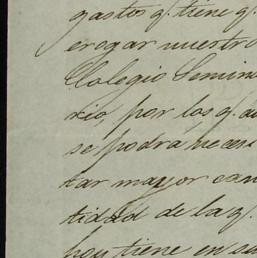 gastos q. tiene q.
erogar nuestro
Colegio Semina
rio, por los q. a
se podra neces
tar mayor can
tidad de la q.
hoy tiene en su